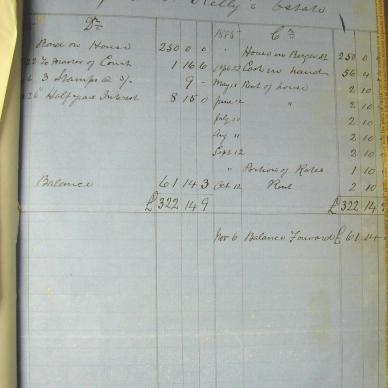 Kelly's Estate
Dr 1885 Cr
on House 250 0 0 " House in 250 0
22 To Master of Court 1 16 6 Cash in hand 56 4
3 Stamps @ 3/- 9 - May 12 Rent of house 2 10
26 " Half years Interest 8 15 0 June 12 " 2 10
July 11 2 10
Aug 11 2 10
Sept 12 2 10
" Portions of Rates 1 10
Balance 61 14 3 Oct 12 Rent 2 10
£322 14 9 £322 14
Nov 6 Balance Forward £61 14